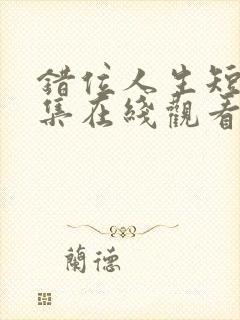 錯位人生短
集在綫觀看
蘭德